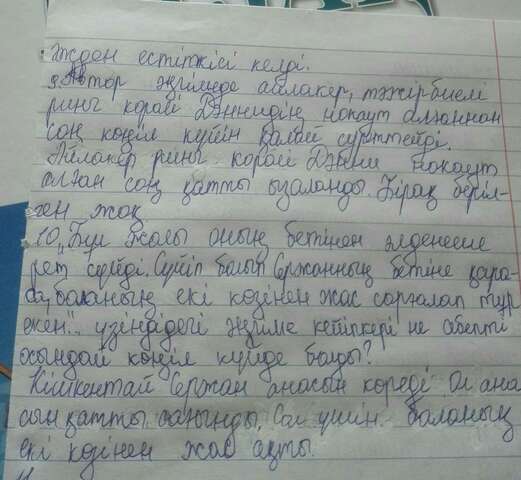 Жәден естіркісі келді.
9. Автор әңгімеде айлакер, тәжірбиелі
ринг қорайі Дәннидің нокаут алғаннан
соң көңіл күйін қалай суреттейді.
Айлакер ринг қорайі Дәнни нокаут
алған соң қатты ызаланды. Бірақ беріл-
ген жоқ
10. "Гүл жалы оның бетінен әлденеше
рет сүйеді. Сүйіп болып Сержанның бетіне қара-
са, баланың екі көзінен жас сорғалап тұр
екен". үзіндідегі әңгіме кейіпкері не себепті
осындай көңіл күйде болды?
Кішкентай Сержан анасын көреді. Ол ана
сын қатты сағынды. Сол үшін баланың
екі көзінен жас ақты.